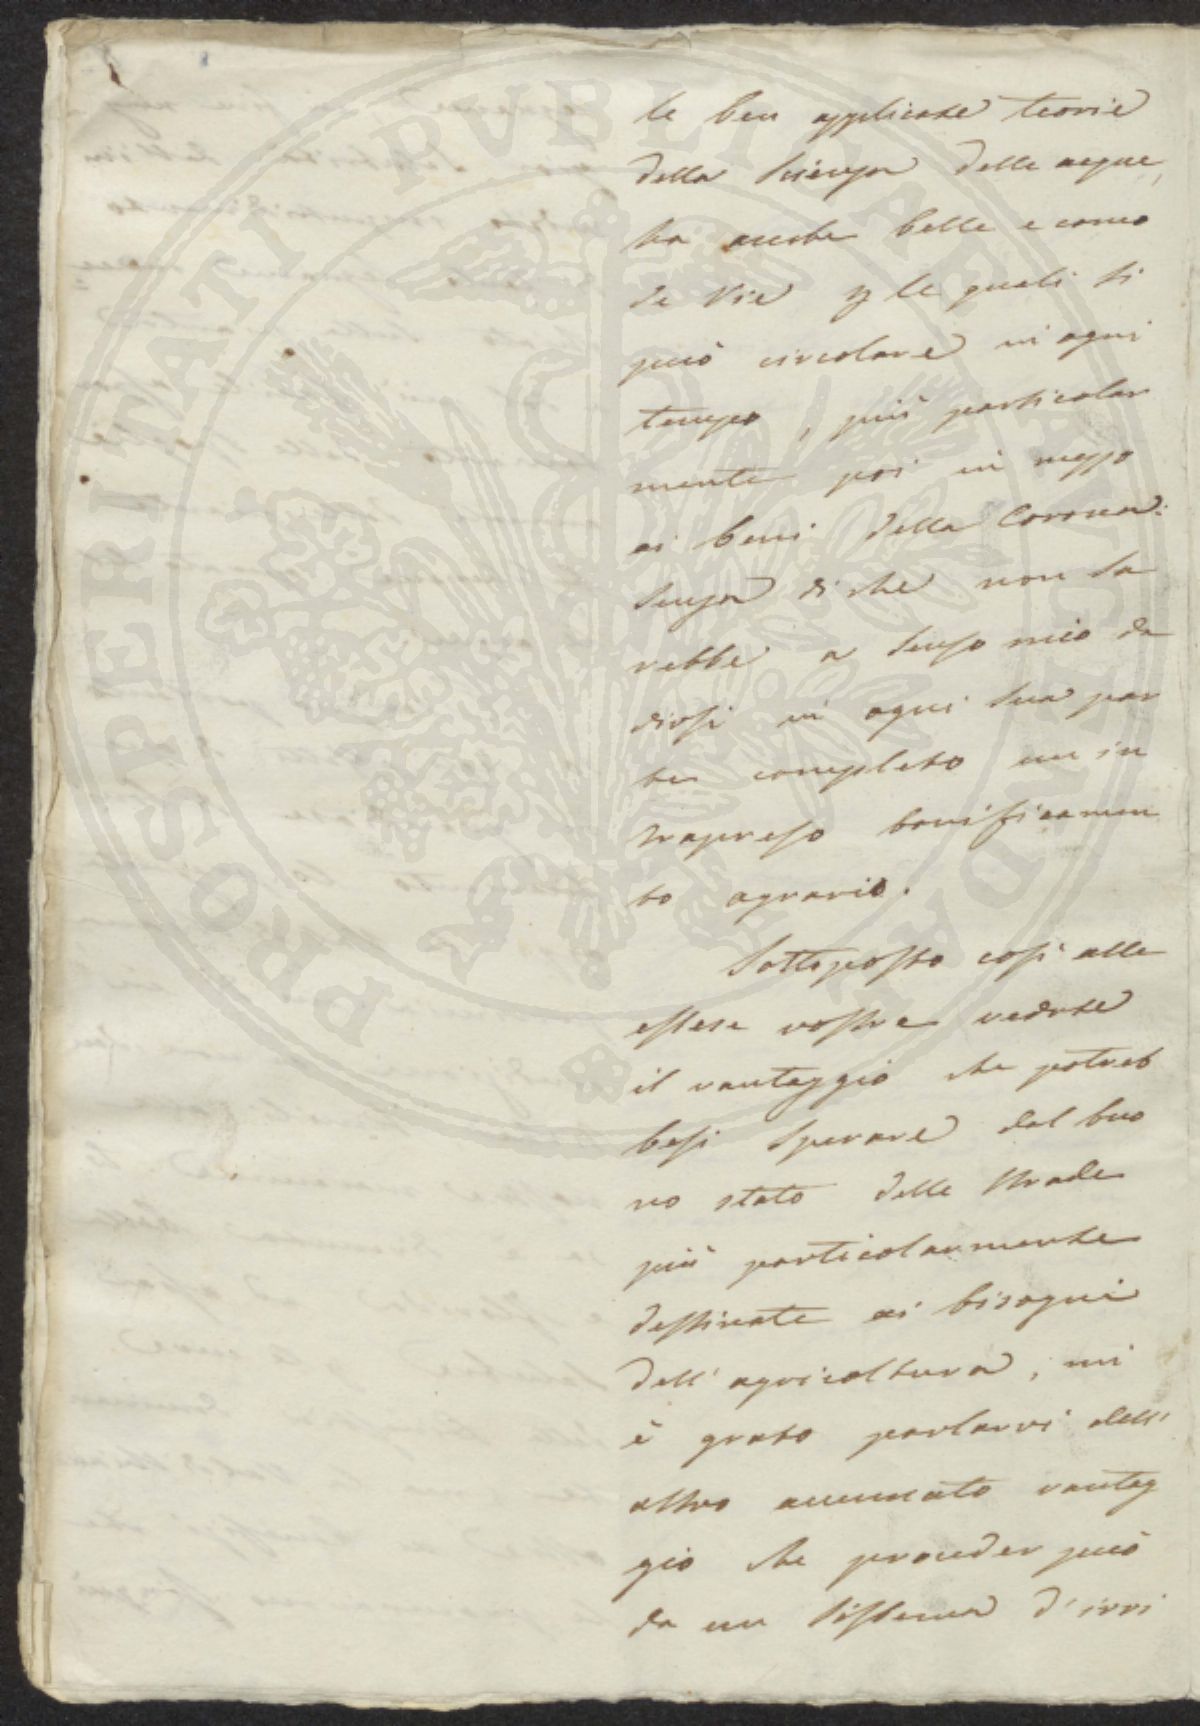 le ben applicate teorie
della Scienza delle acque,
ha anche belle e como
de Vie p le quali si
può circolare in ogni
tempo, più particolar
mente poi in mezzo
ai beni della Corona:
senza di che non sa
rebbe a senso mio da
dirsi in ogni sua par
te completo un in
trapreso bonificamen
to agrario.
Sottoposto così alle
estese vostre vedute
il vantaggio che potreb
besi sperare dal buo
no stato delle strade
più particolarmente
destinate ai bisogni
dell'agricoltura, mi
è grato parlarvi dell'
altro accennato vantag
gio che proceder può
da un sistema d'irri
PROSPERITATI PVBLICAE AVGENDAE